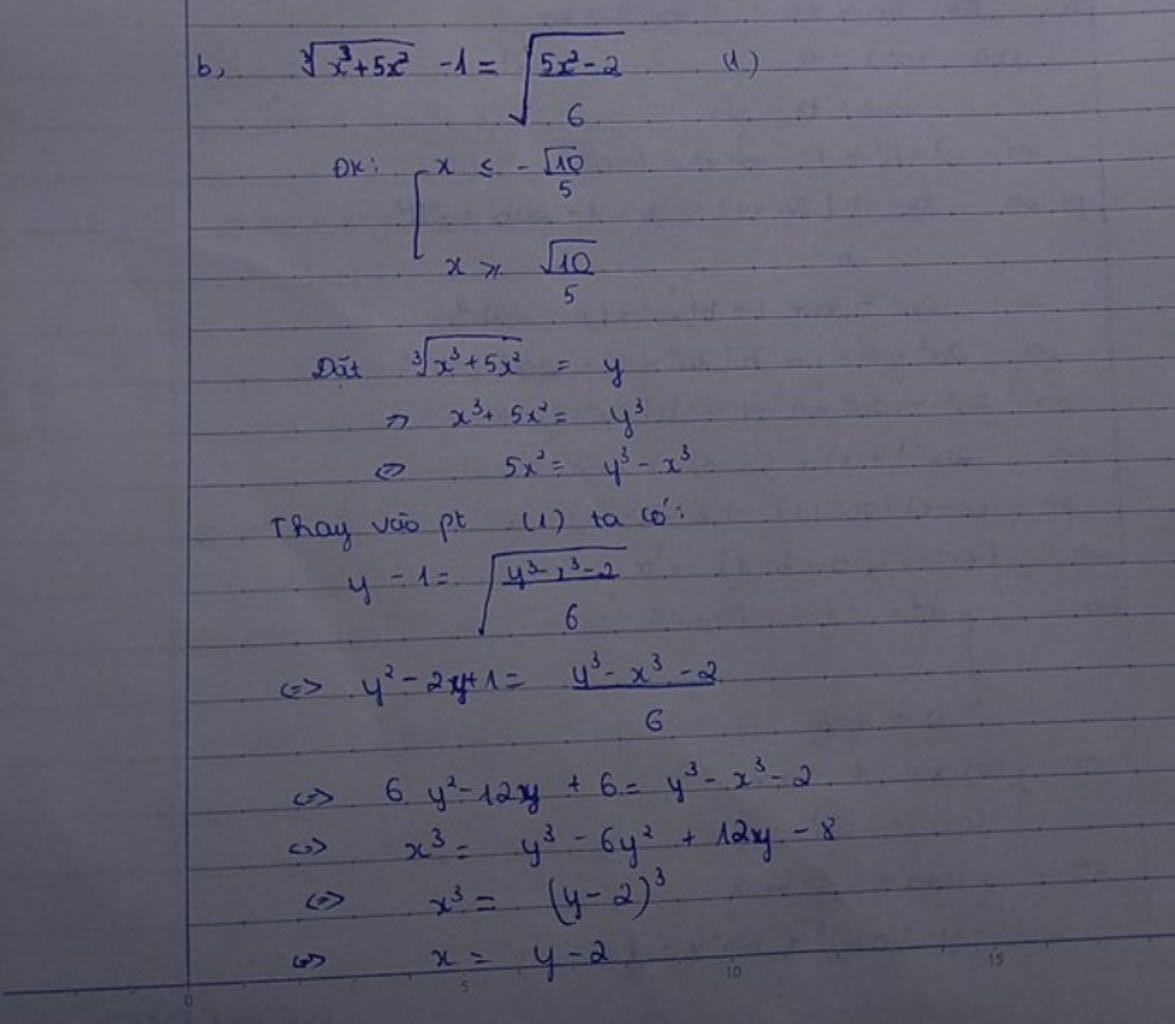 b, ∛(x³+5x²) - 1 = √((5x²-2)/6) (1)
ĐK: [ x ≤ -√10/5
x ≥ √10/5
Đặt ∛(x³+5x²) = y
⇒ x³+ 5x² = y³
⇔ 5x² = y³ - x³
Thay vào pt (1) ta có:
y - 1 = √((y³-x³-2)/6)
⇔ y² - 2y+1 = (y³ - x³ - 2)/6
⇔ 6y² - 12y + 6 = y³ - x³ - 2
⇔ x³ = y³ - 6y² + 12y - 8
⇔ x³ = (y-2)³
⇔ x = y - 2
0 5 10 15